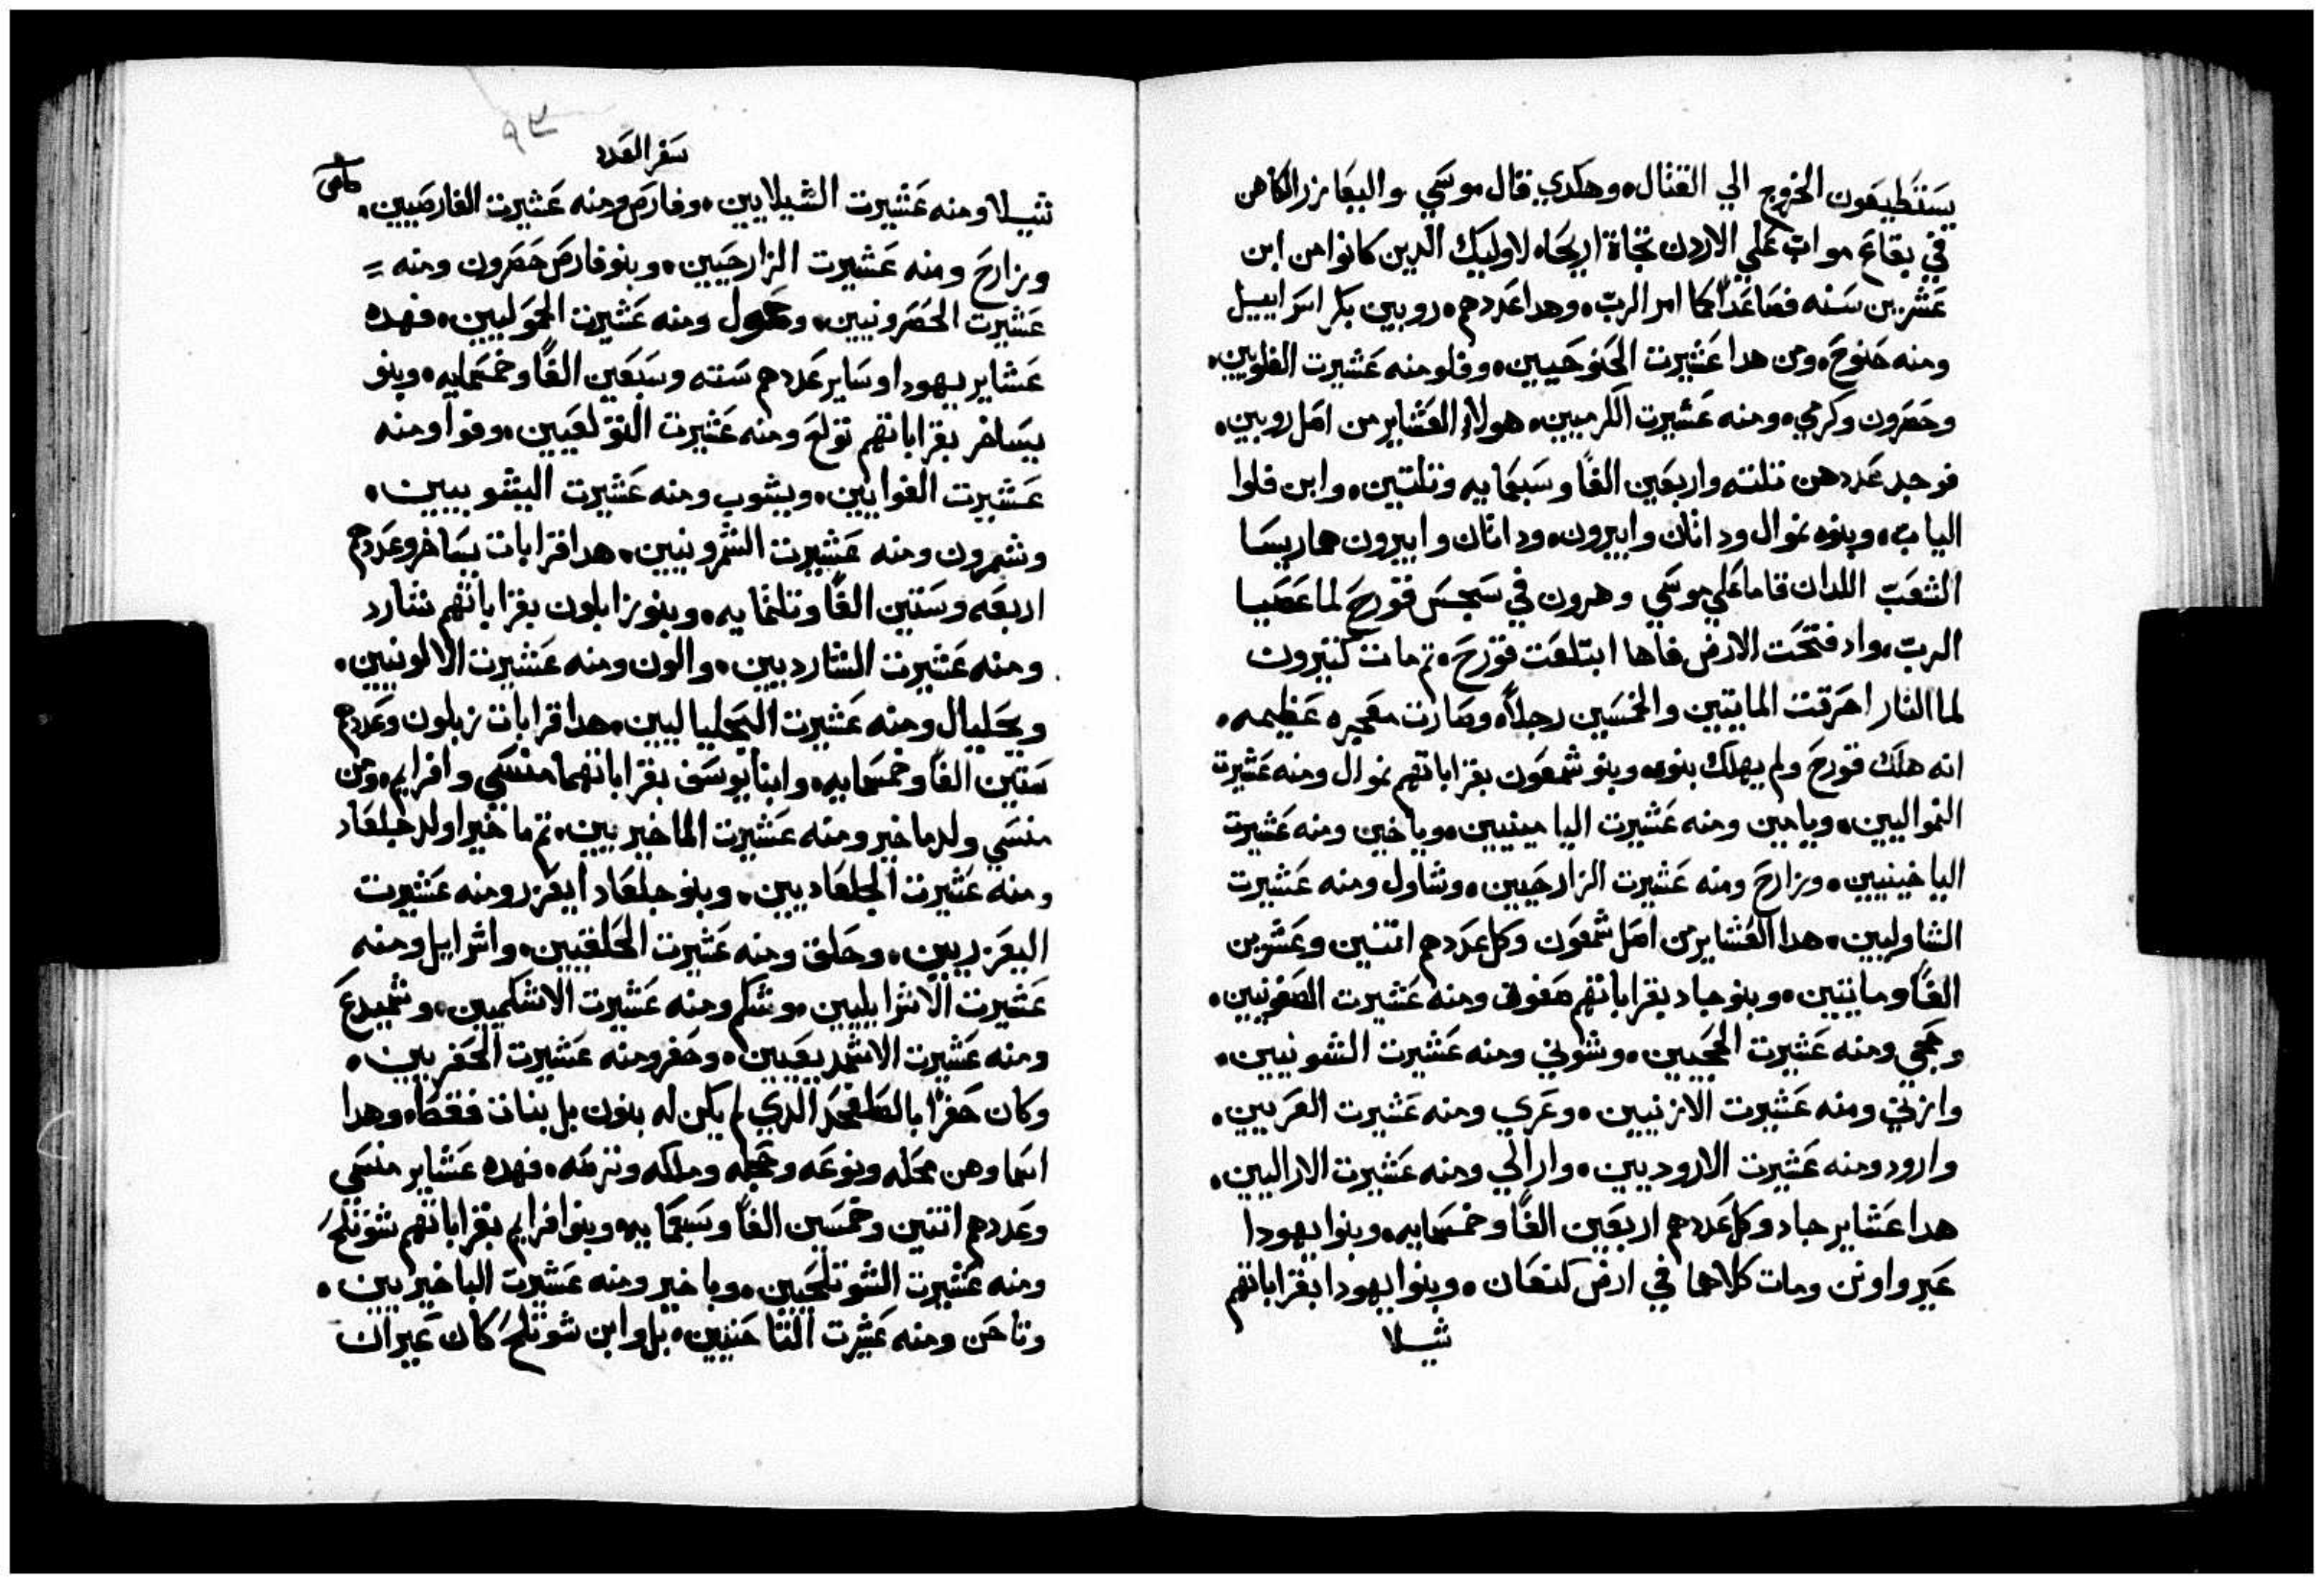 يستطيعون الخروج الي القتال. وهكدي قال موسي واليعازر الكاهن
في بقاع مواب علي الاردن تجاة اريحاه لاوليك الدين كانوا من ابن
عشرين سنه فصاعدًا كما امر الرب. وهدا عددهم. روبين بكر اسراييل
ومنه حنوخ. ومن هدا عشيرت الحنوخيين. وفلو منه عشيرت الفلويين.
وحصرون وكرمي. ومنه عشيرت الكرميين. هولاء العشاير من اصل روبين.
فوجد عددهن تلته واربعين الفًا وسبعمايه وتلتين. وابن فلوا
الياب. وبنوه نموال وداتان وابيرون. وداتان وابيرون هما ريسا
الشعب اللدان قاما علي موسي وهرون في سجس قورح لما عصيا
الرب. واد فتحت الارض فاها ابتلعت قورح. تم مات كتيرون
لما النار احرقت المايتين والخمسين رجلاً. وصارت معجزه عظيمه.
انه هلك قورح ولم يهلك بنوه. وبنو شمعون بقراباتهم نموال ومنه عشيرت
النمواليين. ويامين ومنه عشيرت اليامينيين. وياخين ومنه عشيرت
الياخينيين. وزارح ومنه عشيرت الزارحيين. وشاول ومنه عشيرت
الشاوليين. هدا العشاير من اصل شمعون وكل عددهم اتنين وعشرين
الفًا ومايتين. وبنو جاد بقراباتهم صفون ومنه عشيرت الصفونيين.
وحجي ومنه عشيرت الحجيين. وشوني ومنه عشيرت الشونيين.
وازني ومنه عشيرت الازنيين. وعري ومنه عشيرت العريين.
وارود ومنه عشيرت الاروديين. وارالي ومنه عشيرت الاراليين.
هدا عشاير جاد وكل عددهم اربعين الفًا وخمسمايه. وبنوا يهودا
عير واونن ومات كلاهما في ارض كنعان. وبنوا يهودا بقراباتهم
شيلا
٩٣
سفر العدد
شيلا ومنه عشيرت الشيلايين. وفارص ومنه عشيرت الفارصيين.
وزارح ومنه عشيرت الزارحيين. وبنو فارص حصرون ومنه
عشيرت الحصرونيين. وحمول ومنه عشيرت الحموليين. فهده
عشاير يهودا وساير عددهم سته وسبعين الفًا وخمسمايه. وبنو
يساخر بقراباتهم تولع ومنه عشيرت التولعيين. وفوا ومنه
عشيرت الفوايين. ويشوب ومنه عشيرت اليشوبيين.
وشمرون ومنه عشيرت الشمرونيين. هدا قرابات يساخر وعددهم
اربعه وستين الفًا وتلتمايه. وبنو زابلون بقراباتهم شارد
ومنه عشيرت الشارديين. والون ومنه عشيرت الالونيين.
ويحليال ومنه عشيرت اليحلياليين. هدا قرابات زبلون وعددهم
ستين الفًا وخمسمايه. وابنا يوسف بقراباتهما منسي وافرايم. ومن
منسي ولد ماخير ومنه عشيرت الماخيريين. تم ماخير اولد جلعاد
ومنه عشيرت الجلعاديين. وبنو جلعاد ايعزر ومنه عشيرت
اليعزريين. وحلق ومنه عشيرت الحلقيين. واشرايل ومنه
عشيرت الاشراييليين. وشكم ومنه عشيرت الاشكميين. وشميدع
ومنه عشيرت الاشمديعيين. وحفر ومنه عشيرت الحفريين.
وكان حفر ابا لصلفحد الدي لم يكن له بنون بل بنات فقط. وهدا
اسماوهن محله ونوعه وحجله وملكه وترصه. فهده عشاير منسي
وعددهم اتنين وخمسين الفًا وسبعمايه. وبنوا افرايم بقراباتهم شوتلح
ومنه عشيرت الشوتلحيين. وباخير ومنه عشيرت الباخيريين.
وتاحن ومنه عشيرت التاحنيين. بل وابن شوتلح كان عيران